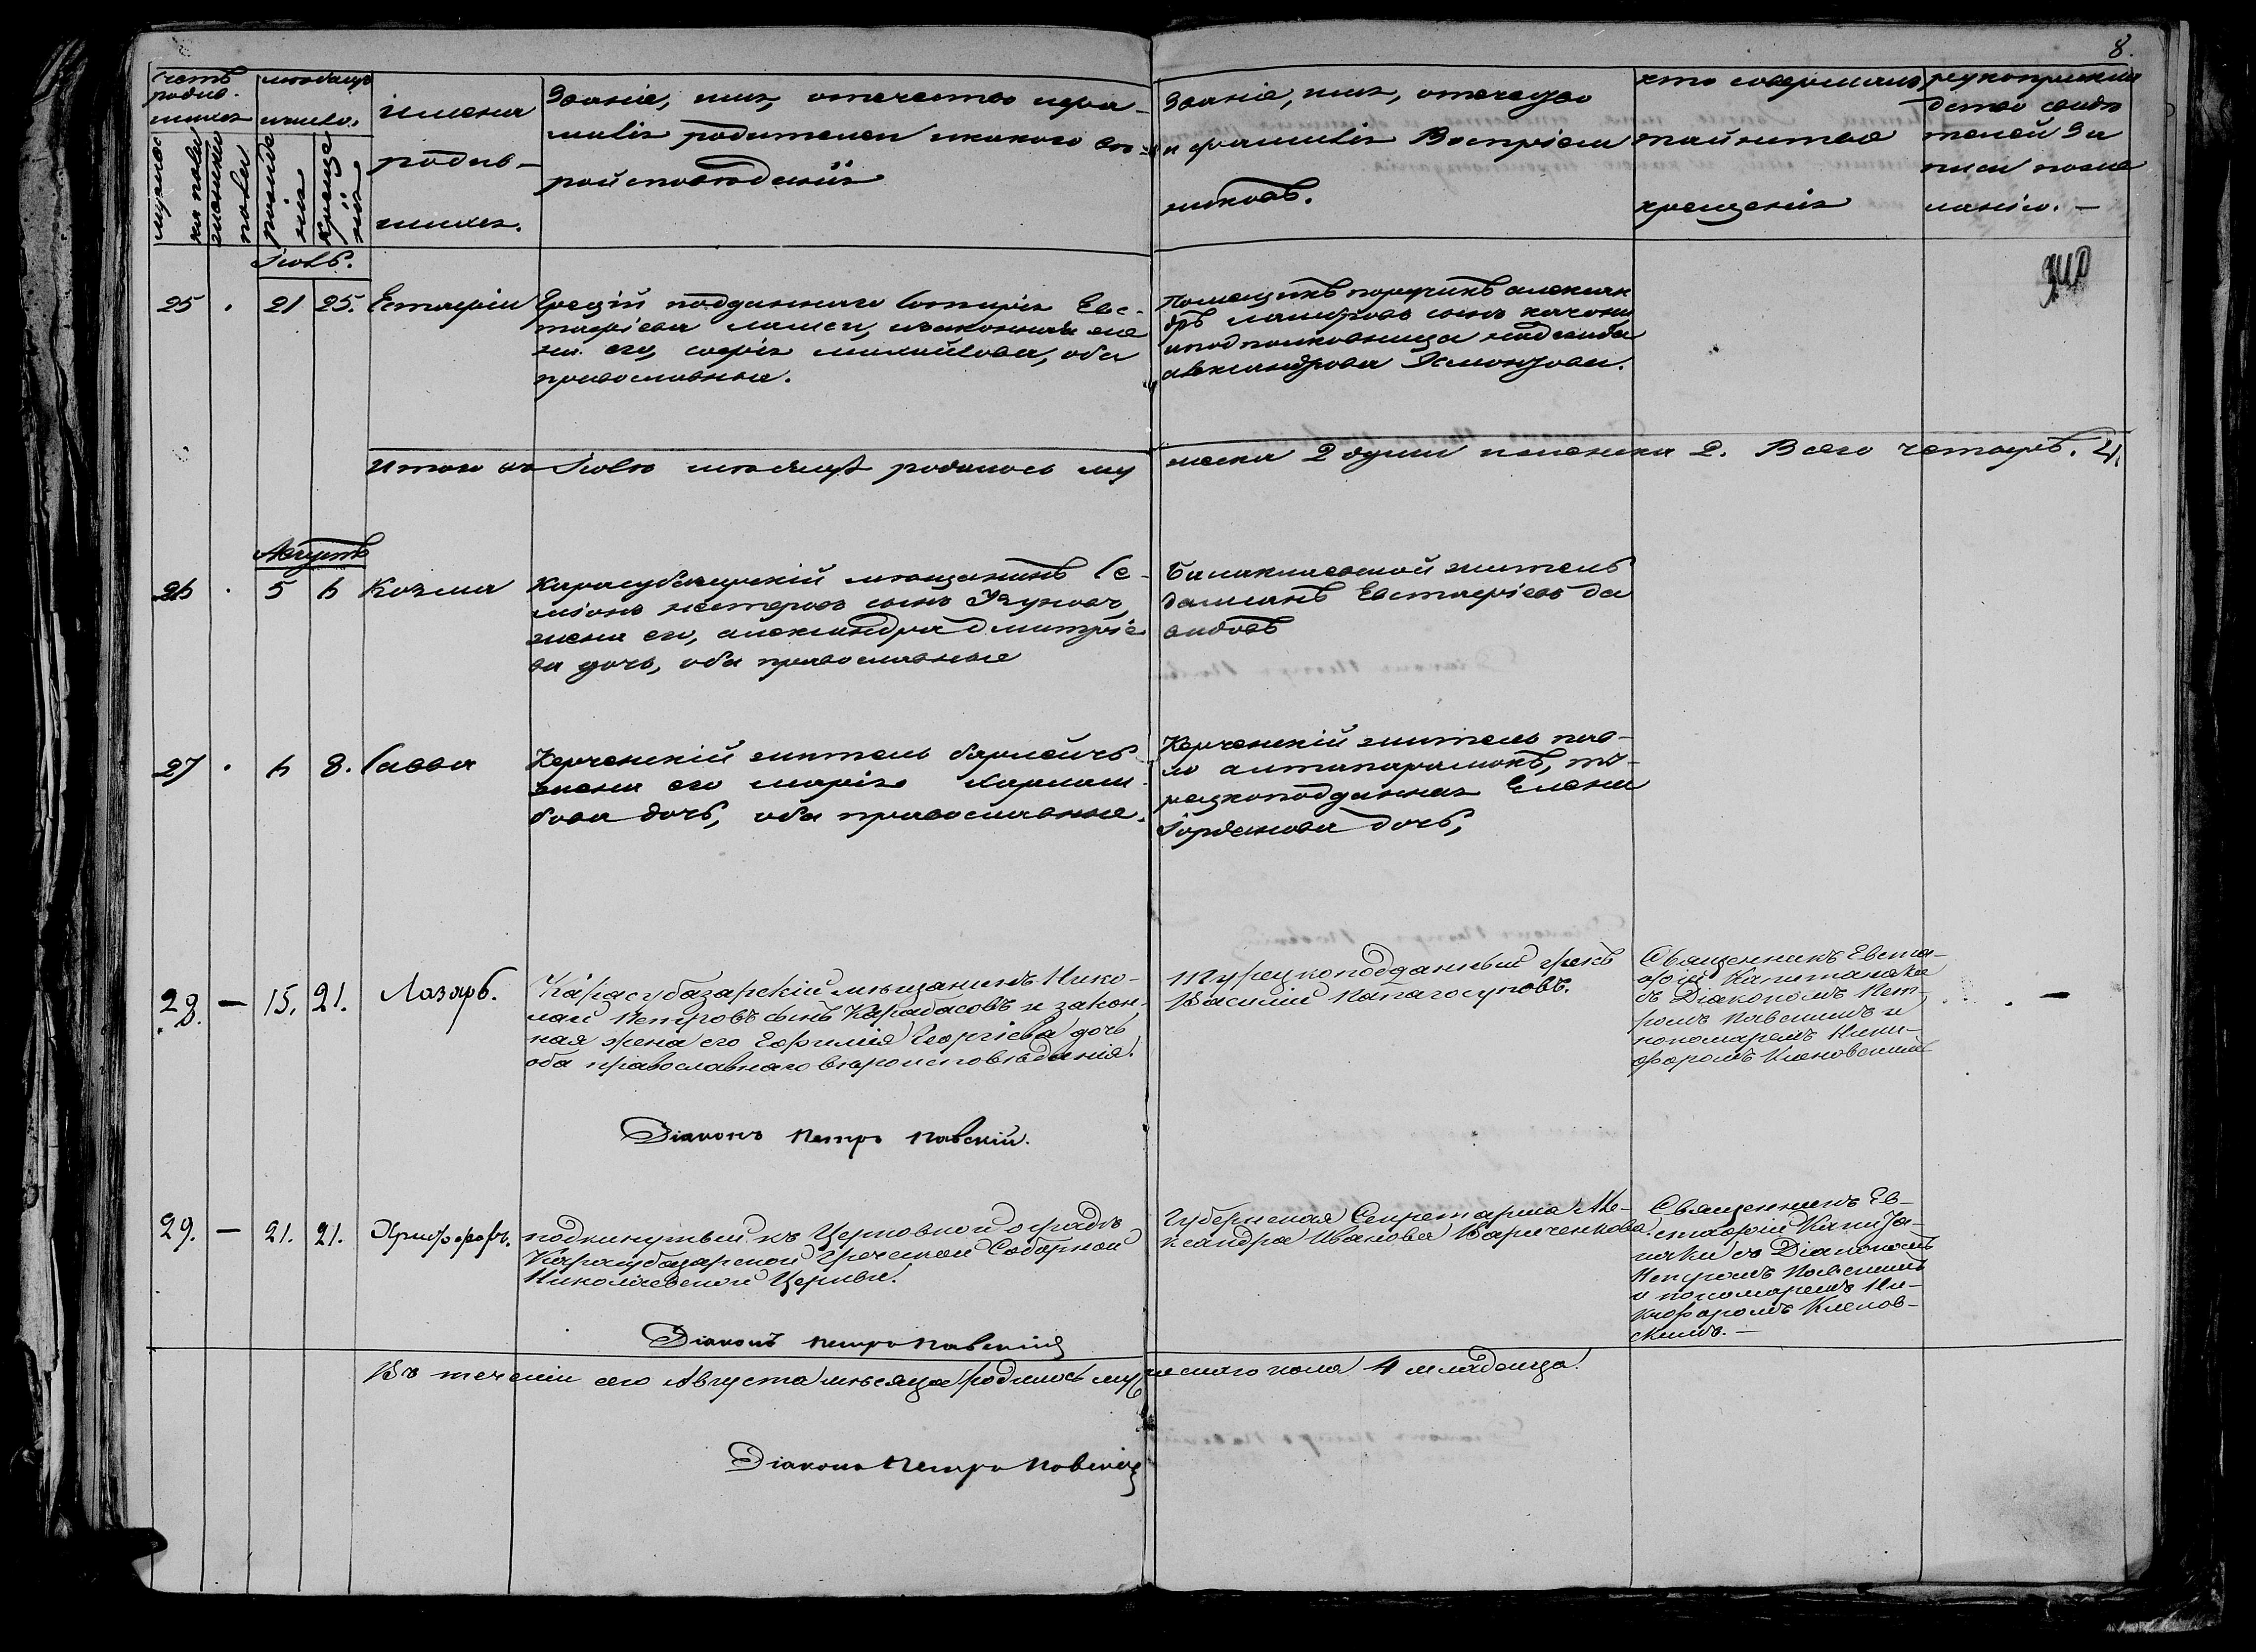 8.
счетъ родив-шихся
мѣсяцъ и число.
мужеска полу
женска полу
рожденія
крещенія
имена
родив-
шихся.
Званіе, имя, отечество и фа-
милія родителей и какого вѣ-
роисповѣданія
Званіе, имя, отечество
и фамилія Воспріем
никовъ.
кто совершалъ
таинство
крещенія
рукоприклад
ство свидѣ
телей За
писи поже
ланію. —
Іюль.
25 . 21 25. Евстафій
Грецій подданнаго Сотирія Евс-
тафіева и законная же
на его, софія михайлова, оба
православныя.
Помещикъ поручикъ алексан
дръ сынъ
и подполковница надежда
александрова
Итого въ Іюлѣ мѣсяцѣ родилось му
жеска 2 души и женска 2. Всего четыре. 4.
Августъ
26 . 5 6 Козма
Карасубазарскій мѣщанинъ Се-
міонъ нестеровъ сынъ Узуновъ,
жена его, александра дмитріе
ва дочь, оба православные
Балаклавской житель
Даміанъ Евстафіевъ Да
видовъ
27 . 6 8. Савва
Керченскій житель
жена его марія Харлам
бова дочь, оба православные.
Керченскій житель пав-
ло ту-
рецкоподданная Елена
дочь,
28. — 15. 21. Лазарь.
Карасубазарскій мѣщанинъ Нико-
лай Петровъ сынъ Карабасовъ и закон-
ная жена его Ефимія Георгіева дочь
оба православнаго вѣроисповѣданія.
Турецкоподданный грекъ
Василій Папагосуповъ.
Священникъ Евста-
фій Капитанаки
съ Діакономъ Пет-
ромъ Павскимъ и
пономаремъ Ники-
форомъ Кленовскимъ
—
Діаконъ Петръ Павскій.
29. — 21. 21. Христофоръ.
подкинутый къ Церковной оградѣ
Карасубазарской Греческой Соборной
Николаевской Церкви.
Губернская Секретарша Але-
ксандра Иванова Вариченкова.
Священникъ Ев-
стафій Капита-
наки съ Діакономъ
Петромъ Павскимъ
и пономаремъ Ни-
кифоромъ Кленов-
скимъ. —
Діаконъ Петръ Павскій
Въ теченіи сего Августа мѣсяца родилось му
жескаго пола 4 младенца.
Діаконъ Петръ Павскій